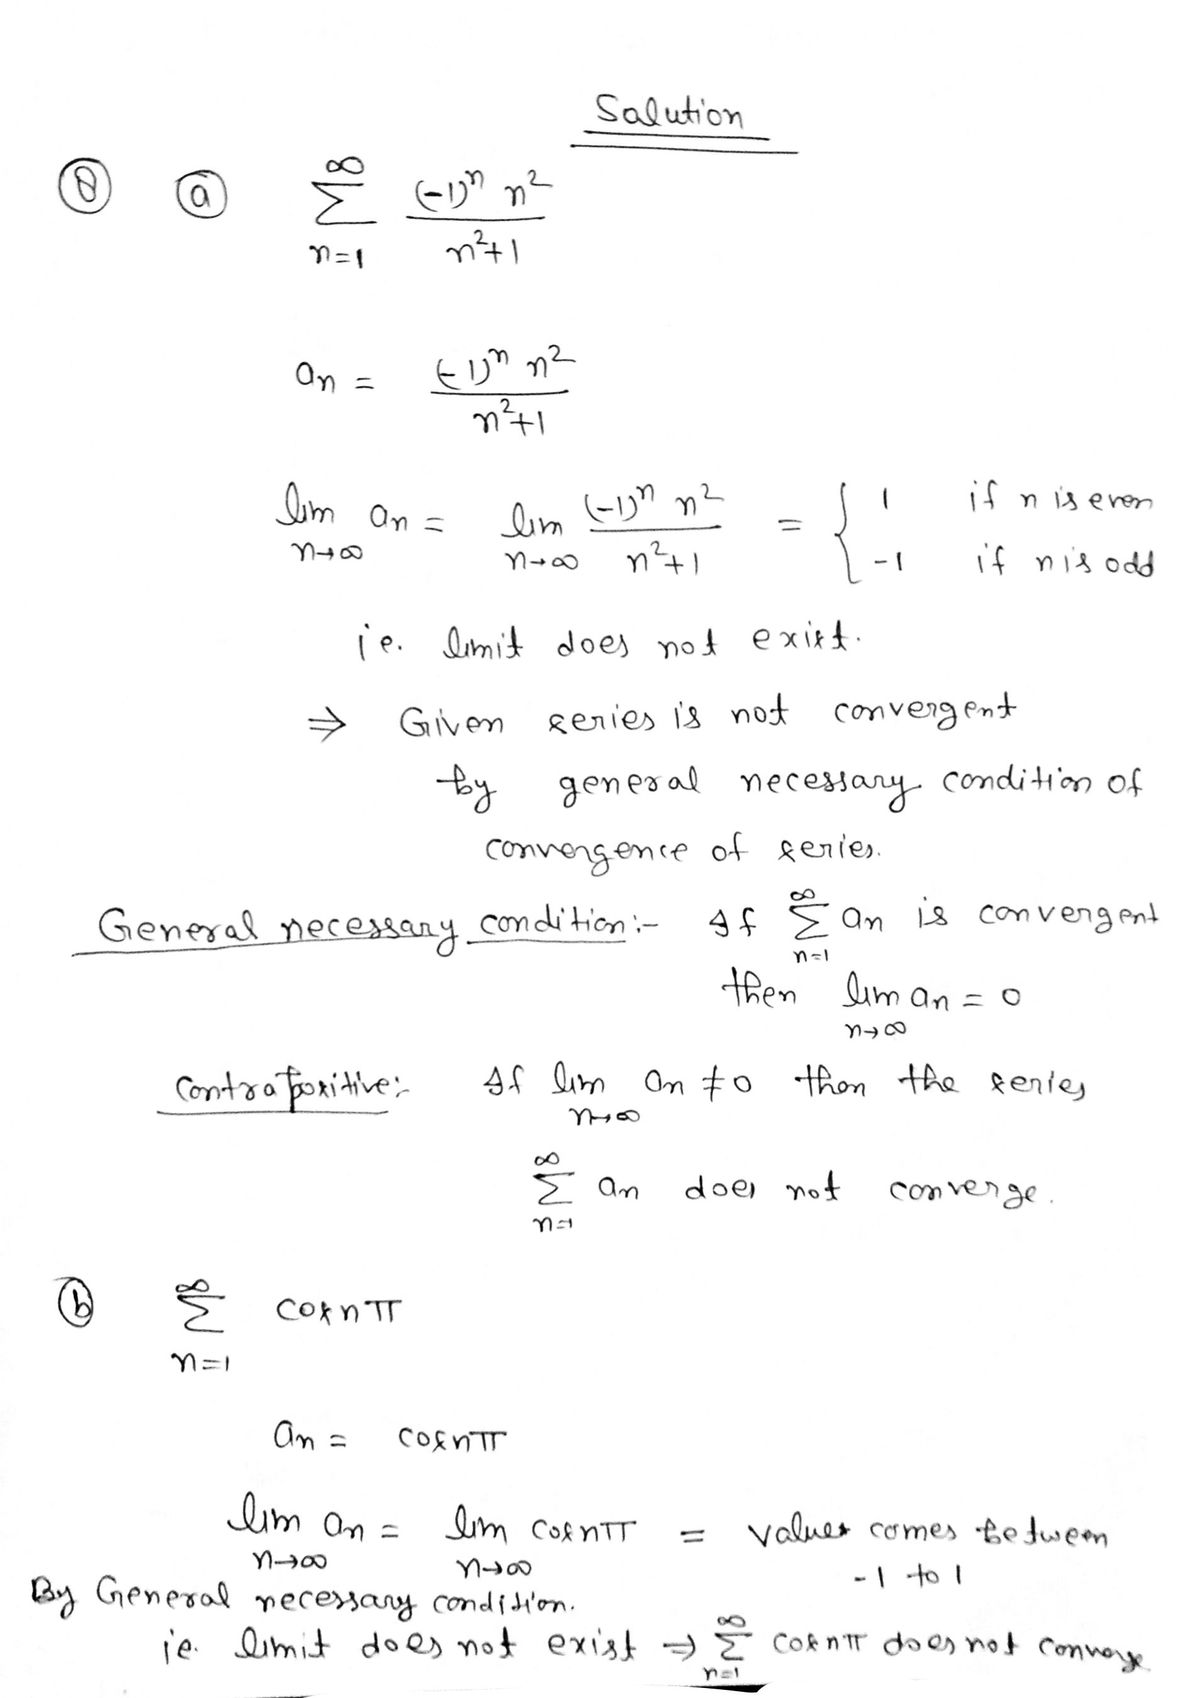 Salution
⑧ ⓐ ∞∑n=1 (-1)ⁿ n² / n²+1
an = (-1)ⁿ n² / n²+1
lim n→∞ an = lim n→∞ (-1)ⁿ n² / n²+1 = { 1 if n is even
-1 if n is odd
i.e. limit does not exist.
⇒ Given series is not convergent
by general necessary condition of
convergence of series.
General necessary condition:- If ∞∑n=1 an is convergent
then lim n→∞ an = 0
Contrapositive:- If lim n→∞ an ≠ 0 then the series
∞∑n=1 an does not converge.
ⓑ ∞∑n=1 cosnπ
an = cosnπ
lim n→∞ an = lim n→∞ cosnπ = values comes between
-1 to 1
By General necessary condition.
ie. limit does not exist ⇒ ∞∑n=1 cosnπ does not converge